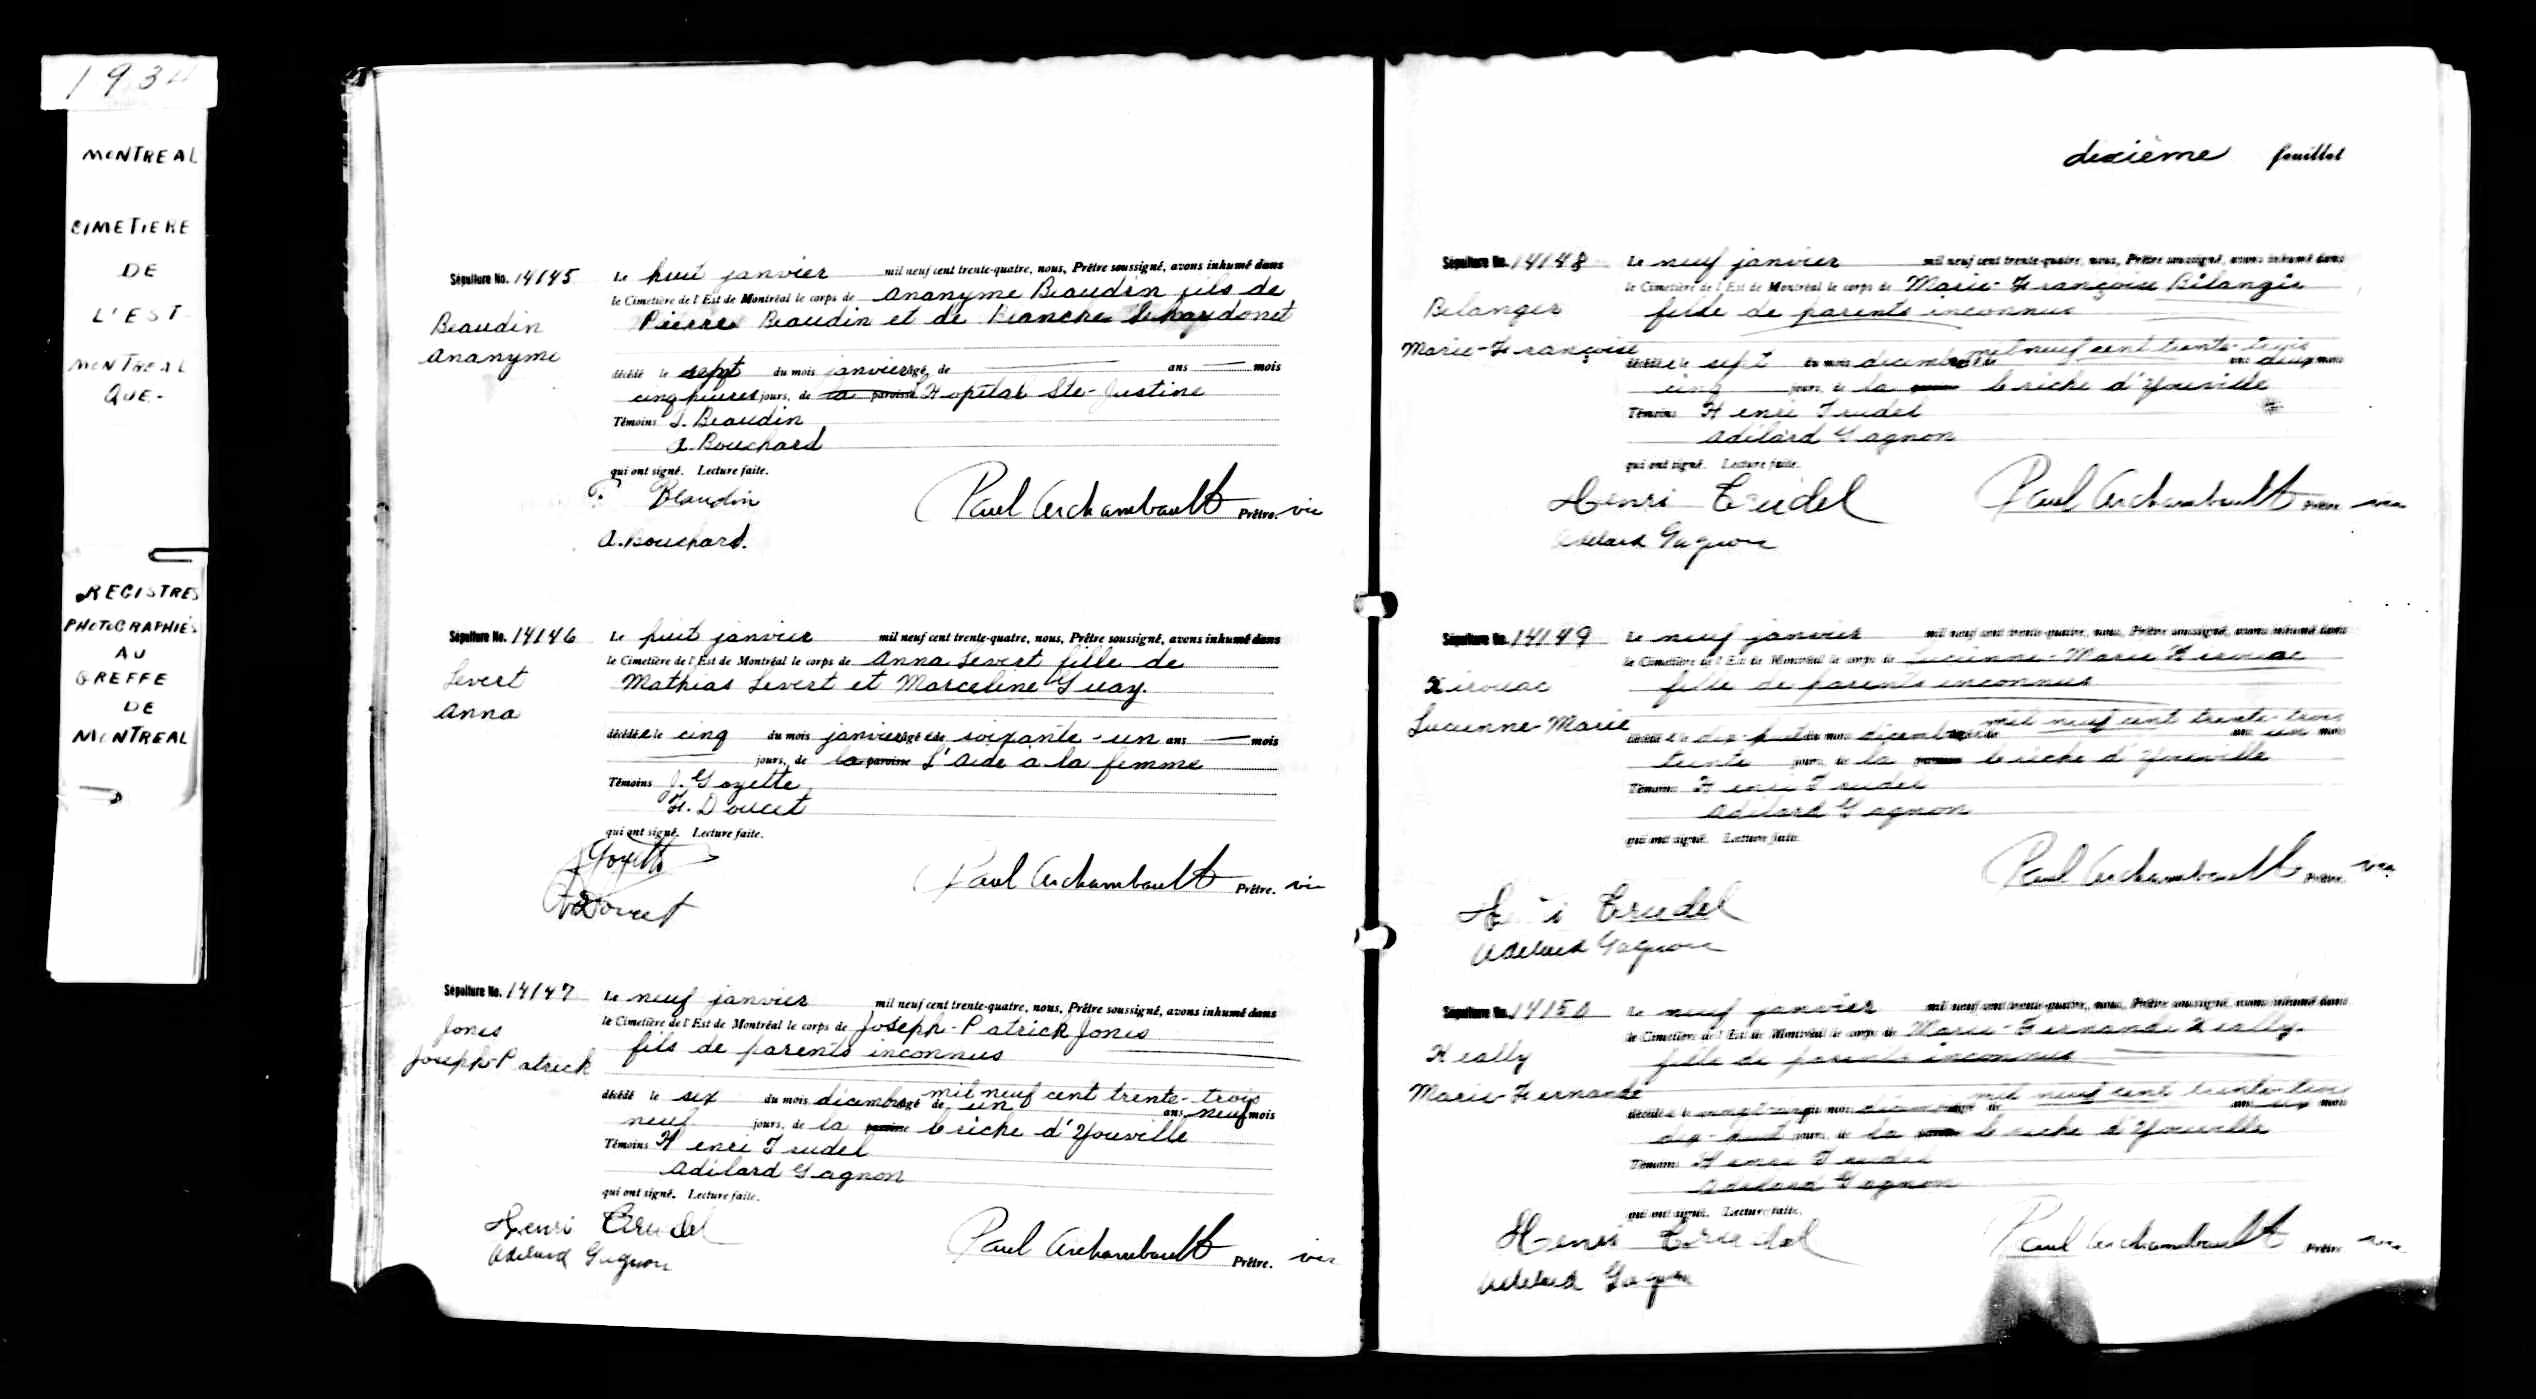 1934
MONTREAL
CIMETIERE
DE
L'EST
MONTREAL
QUE-
REGISTRES
PHOTOGRAPHIÉS
AU
GREFFE
DE
MONTREAL
Sépulture No. 14145 Le huit janvier mil neuf cent trente-quatre, nous, Prêtre soussigné, avons inhumé dans
le Cimetière de l'Est de Montréal le corps de Ananyme Beaudin fils de
Beaudin
Ananyme
Pierre Beaudin et de Blanche
décédé le sept du mois janvier âgé de ans mois
cinq heures jours, de la paroisse Hopital Ste-Justine
Témoins J. Beaudin
A. Bouchard
qui ont signé. Lecture faite.
Beaudin
Paul Archambault Prêtre. vic
A. Bouchard.
Sépulture No. 14146 Le huit janvier mil neuf cent trente-quatre, nous, Prêtre soussigné, avons inhumé dans
le Cimetière de l'Est de Montréal le corps de Anna Levert fille de
Levert
Anna
Mathias Levert et Marceline Guay.
décédée le cinq du mois janvier âgé de soixante-un ans mois
jours, de la paroisse L'Aide à la femme
Témoins J. Goyette
H. Doucet
qui ont signé. Lecture faite.
Goyette
Doucet
Paul Archambault Prêtre. vic
Sépulture No. 14147 Le neuf janvier mil neuf cent trente-quatre, nous, Prêtre soussigné, avons inhumé dans
le Cimetière de l'Est de Montréal le corps de Joseph-Patrick Jones
Jones
Joseph-Patrick
fils de parents inconnus
mil neuf cent trente-trois
décédé le six du mois décembre âgé de un ans neuf mois
neuf jours, de la paroisse Crèche d'Youville
Témoins Henri Trudel
Adélard Gagnon
qui ont signé. Lecture faite.
Henri Trudel
Adelard Gagnon
Paul Archambault Prêtre. vic
dixième feuillet
Sépulture No. 14148 Le neuf janvier mil neuf cent trente-quatre, nous, Prêtre soussigné, avons inhumé dans
le Cimetière de l'Est de Montréal le corps de Marie-Françoise Bélanger
Belanger
Marie-Françoise
fille de parents inconnus
mil neuf cent trente-trois
décédée le sept du mois décembre âgé de ans deux mois
cinq jours, de la paroisse Crèche d'Youville
Témoins Henri Trudel
Adélard Gagnon
qui ont signé. Lecture faite.
Henri Trudel
Adelard Gagnon
Paul Archambault Prêtre vic
Sépulture No. 14149 Le neuf janvier mil neuf cent trente-quatre, nous, Prêtre soussigné, avons inhumé dans
le Cimetière de l'Est de Montréal le corps de Lucienne-Marie Kirouac
Kirouac
Lucienne-Marie
fille de parents inconnus
mil neuf cent trente-trois
décédée le dix-huit du mois décembre âgé de ans un mois
trente jours, de la paroisse Crèche d'Youville
Témoins Henri Trudel
Adélard Gagnon
qui ont signé. Lecture faite.
Henri Trudel
Adelard Gagnon
Paul Archambault Prêtre vic
Sépulture No. 14150 Le neuf janvier mil neuf cent trente-quatre, nous, Prêtre soussigné, avons inhumé dans
le Cimetière de l'Est de Montréal le corps de Marie-Fernande Heally.
Heally
Marie-Fernande
fille de parents inconnus
mil neuf cent trente-trois
décédée le du mois décembre âgé de ans mois
dix-huit jours, de la paroisse Crèche d'Youville
Témoins Henri Trudel
Adélard Gagnon
qui ont signé. Lecture faite.
Henri Trudel
Adelard Gagnon
Paul Archambault Prêtre vic